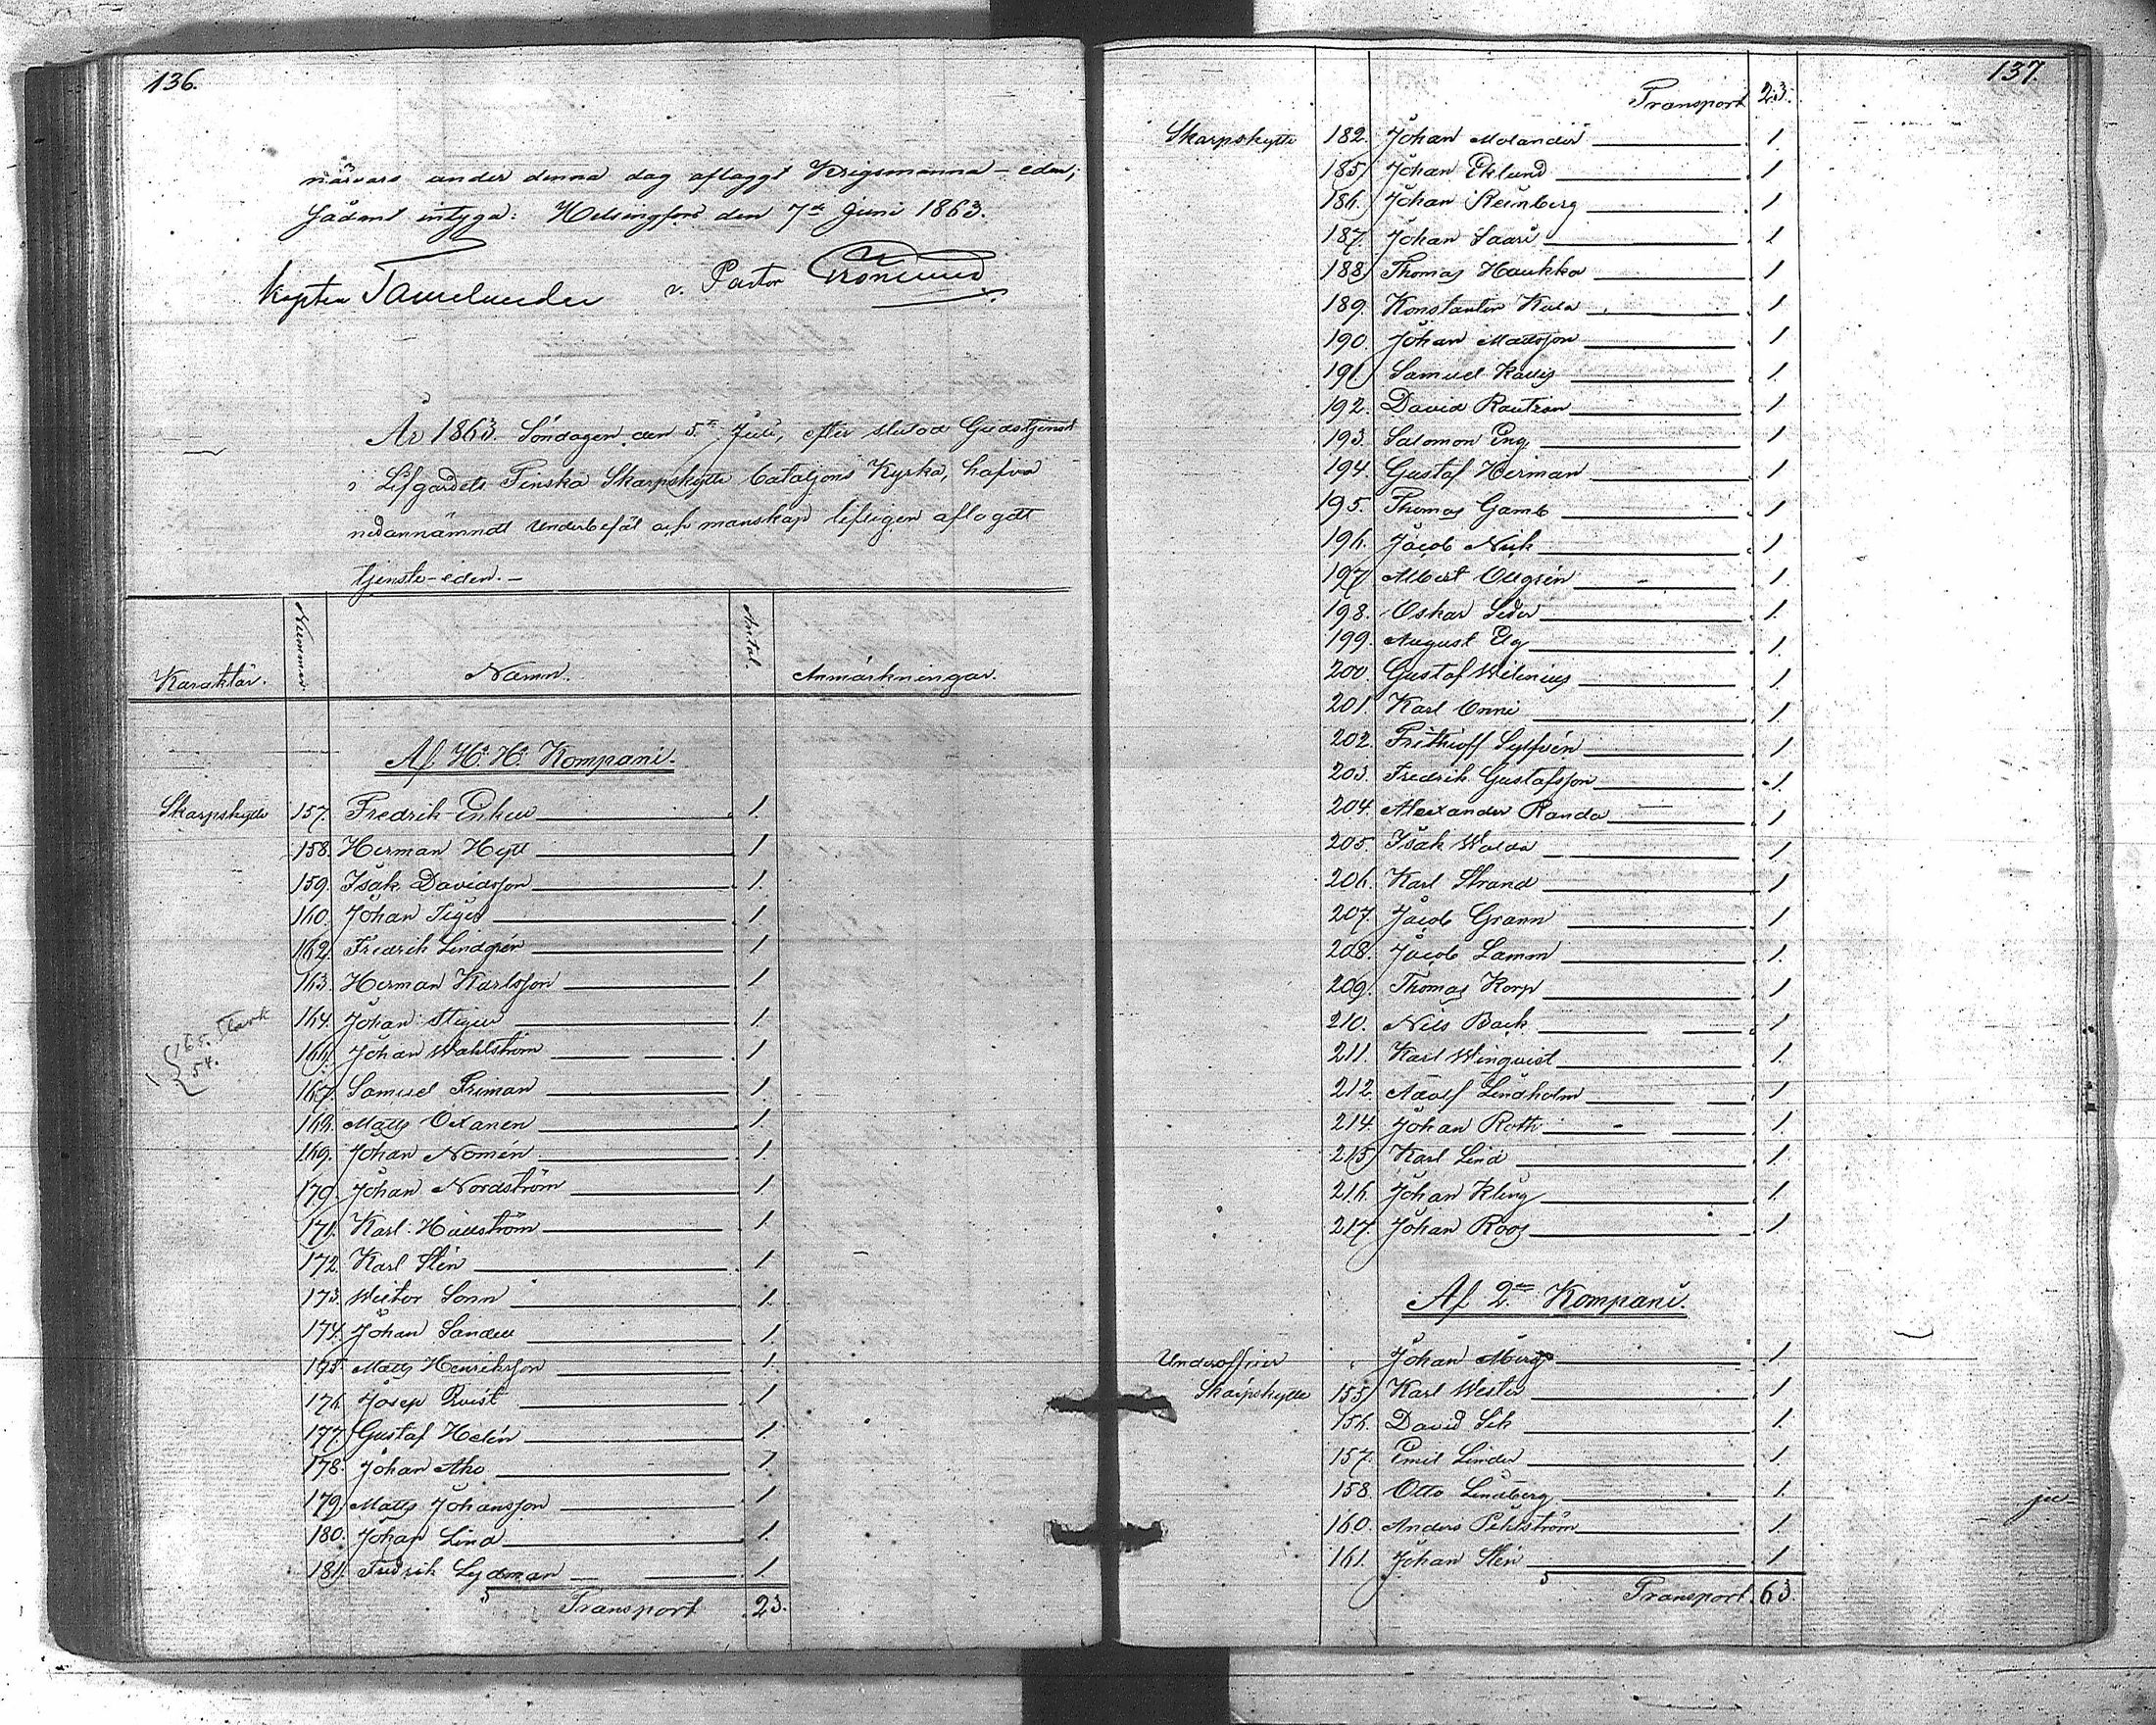 136.
närvaro under denna dag aflaggt Krigsmanna-eden,
sådant intyga: Helsingfors den 7de Juni 1863.
Kapten v. Pastor
År 1863. Söndagen den 5te Juli, efter slutad Gudstjenst
i Lifgardets Finska Skarpskytte bataljons Kyrka, hafva
nedannämndt Underbefäl och manskap lifligen aflagdt
tjenste-eden.-
Karaktär. Nummer. Namn. Antal. Anmärkningar.
Af H.s H.s Kompani.
Skarpskytte 157. Fredrik 1.
158. Herman Hytt 1
159. Isak Davidsson 1.
160. Johan Tiger 1
162. Fredrik Lindgrén 1
163. Herman Karlsson 1
164. Johan Stiger 1.
165. Stark
54.
166. Johan Wahlström 1
167. Samuel Friman 1.
168. Matts Oxanen 1.
169. Johan Nomén 1
170. Johan Nordström 1.
171. Karl Hällström 1.
172. Karl Stén 1.
173. Wictor Sorin 1.
174. Johan Sandell 1.
175. Matts Henriksson 1.
176. Josep Qvist 1
177. Gustaf Helén 1.
178. Johan Aho 1
179. Matts Johansson 1
180. Johan Lind 1.
181. Fredrik Lydman 1
Transport 23.
137.
Transport 23.
Skarpskytte 182. Johan Molander 1.
185. Johan Eklund 1
186. Johan Reinberg 1
187. Johan Saari 1
188. Thomas Haukka 1
189. Konstantin Kula 1
190. Johan Mattsson 1
191. Samuel Kallis 1.
192. David Rautzon 1
193. Salomon Eng 1
194. Gustaf Herman 1
195. Thomas Gamb 1
196. Jacob Nick 1
197. Albert Ollgrén 1
198. Oskar Seder 1.
199. August Elg 1
200. Gustaf Wilenius 1
201. Karl Onni 1
202. Frithioff Sylfvén 1
203. Fredrik Gustafsson 1
204. Alexander Randa 1
205. Isak Walda 1
206. Karl Strand 1
207. Jacob Grann 1
208. Jacob Lamm 1.
209. Thomas Korp 1
210. Nils Back 1
211. Karl Winqvist 1.
212. Adolf Lindholm 1
214. Johan Roth 1
215. Karl Lind 1.
216. Johan Kling 1.
217. Johan Roos 1
Af 2dra Kompani.
Underofficer Johan Murg 1.
Skarpskytte 155. Karl Wester 1
156. David Sik 1.
157. Emil Linder 1
158. Otto Lindberg 1.
160. Anders Pehlström 1.
161. Johan Stén 1
Transport. 63.